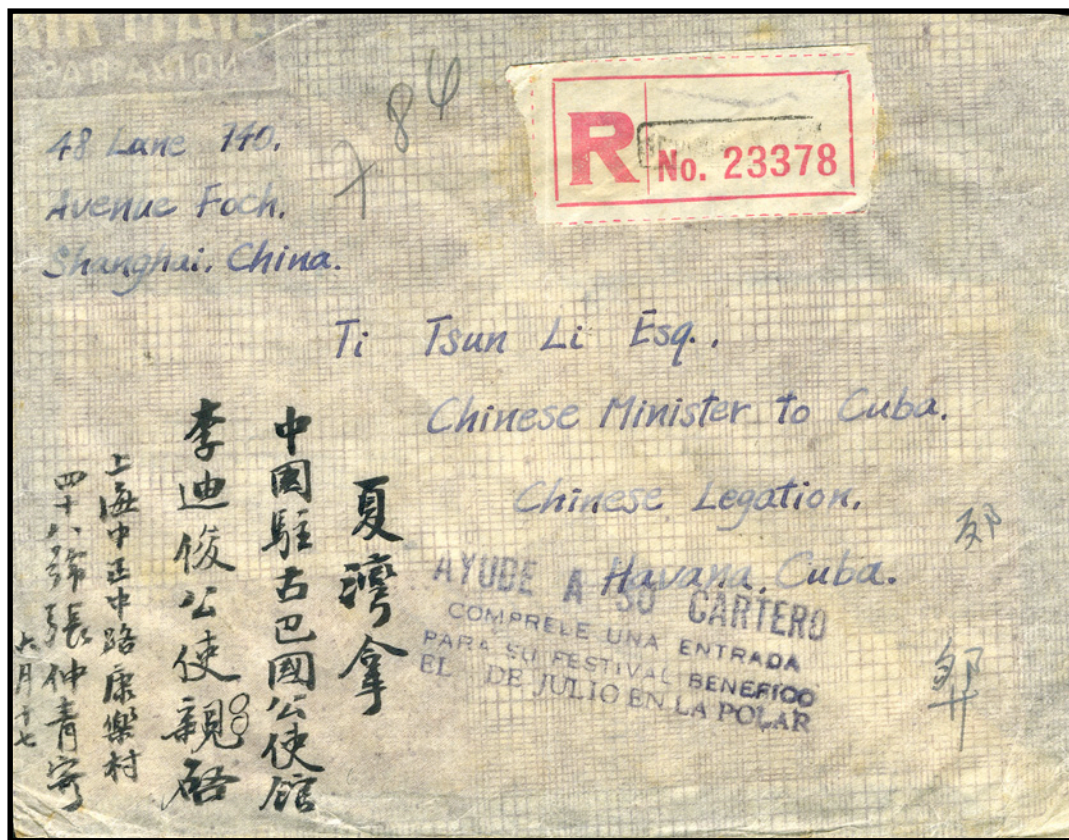 48 Lane 740.
Avenue Foch.
Shanghai, China.
X 84
R
No. 23378
Ti Tsun Li Esq.,
Chinese Minister to Cuba.
Chinese Legation.
Havana, Cuba.
AYUDE A SU CARTERO
COMPRELE UNA ENTRADA
PARA SU FESTIVAL BENEFICO
EL DE JULIO EN LA POLAR
夏灣拿
中國駐古巴國公使館
李迪俊公使親啓
上海中正中路康樂村
四十八號張仲青寄
六月十七